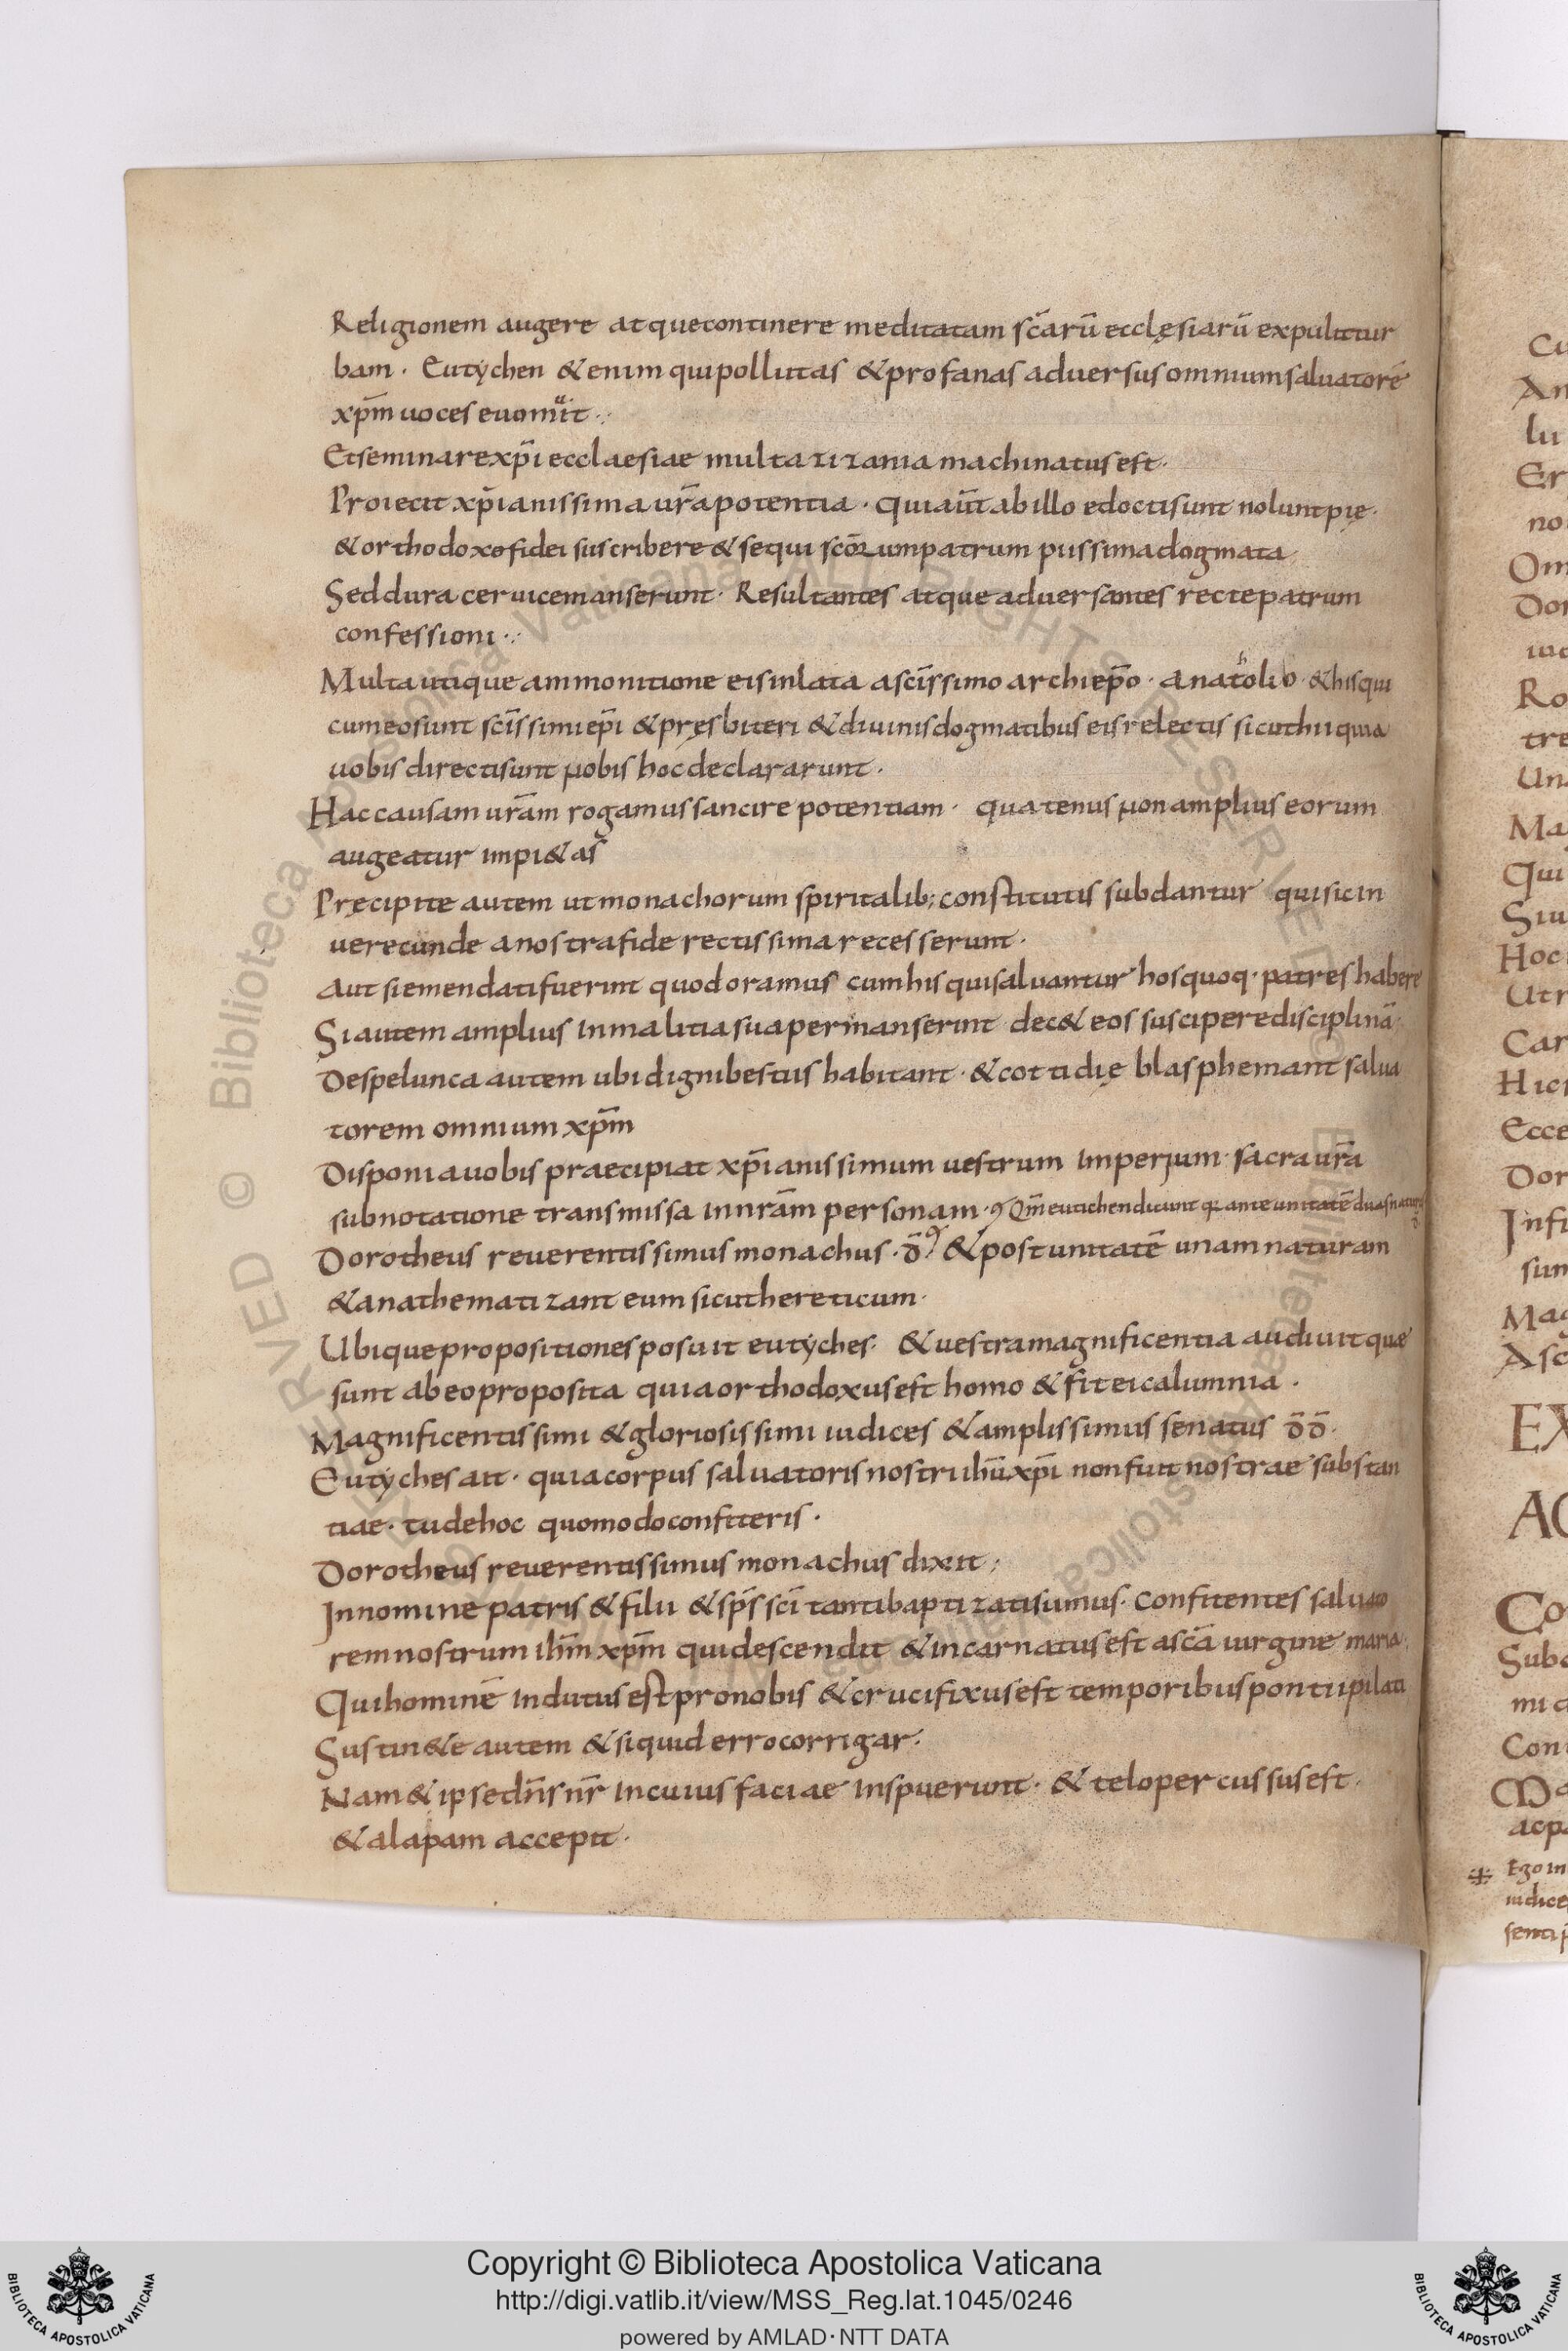 Religionem augere atquecontinere meditatam scarū ecclęsiarū expulittur
bam · Eutychen &enim quipollutas &profanas aduersusomniumsaluatorē
xp̄m uoces euomuit ·:
Etseminarexp̄i ecclaesiae multa zizania machinatusest ·
Proiecit xp̄ianissima ur̄apotentia · Quiaūt abillo edoctisunt noluntpię ·
&orthodoxefidei suscribere & sequi scōrumpatrum piissimadogmata
Seddura ceruicemanserunt · Resultantes atque aduersantes rectepatrum
confessioni ·:
Multautique ammonitione eisinlata ascis̄simo archiep̄o · anatholio · &hisqui
cumeosunt scis̄simiep̄i &pręsbiteri &diuinisdogmatibus eisrelectis sicuthiiquia
uobis directisunt nobis hocdeclararunt ·
Haccausam ur̄am rogamussancire potentiam · quatenus nonamplius eorum
augeatur impi&as
Pręcipite autem utmonachorum spiritalib; constitutis subdantur quisicin
uerecunde anostrafide rectissimarecesserunt ·
Aut siemendatifuerint quodoramus cumhis quisaluantur hosquoq· patres habere
Siautem amplius inmalitiasuapermanserint dec&eos suscipere disciplinā ·
Despelunca autem ubidignibestiis habitant · &cottidię blasphemant salua
torem omnium xp̄m
Disponiauobis praecipiat xp̄ianissimum uestrum Imperium · sacraur̄a
subnotatione transmissa innr̄am personam · Qm̄ eutichen dicunt qr ante unitatē duas naturas
Dorotheus reuerentissimus monachus · d̄ &postunitatē unamnaturam
&anathematizant eum sicuthereticum ·
Ubiquepropositionesposuit eutyches · &uestramagnificentia audiuitquae
sunt abeoproposita quiaorthodoxusest homo &fit eicalumnia ·
Magnificentissimi &gloriosissimi iudices &amplissimus senatus d̄d̄ ·
Eutychesait · quiacorpus saluatorisnostri ihūxp̄i nonfuit nostrae substan
tiae · tudehoc quomodoconfiteris ·
Dorotheus reuerentissimus monachus dixit ;
Innomine patris &filii &sp̄s sc̄i tantibaptizatisumus · confitentes saluato
remnostrum ihm̄ xp̄m quidescendit &incarnatusest ascā uirgine maria ·
Quihominē indutusestpronobis &crucifixusest temporibuspontiipilati
Sustin&e autem &siquid errocorrigar ·
Nam&ipsedn̄s nr̄ incuius faciae inspuerunt · &telopercussusest ·
&alapam accepit ·
EX
Copyright © Biblioteca Apostolica Vaticana
http://digi.vatlib.it/view/MSS_Reg.lat.1045/0246
powered by AMLAD·NTT DATA
BIBLIOTECA APOSTOLICA VATICANA
BIBLIOTECA APOSTOLICA VATICANA